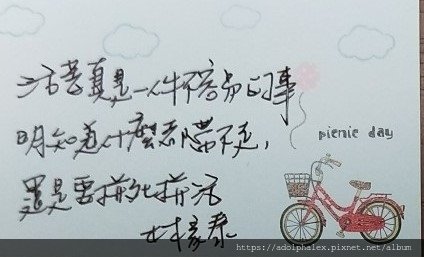 活著真是一件不容易的事
明知道什麼都帶不走，
還是要拼死拼活
林家泰
picnic day
https://adolphalex.pixnet.net/album